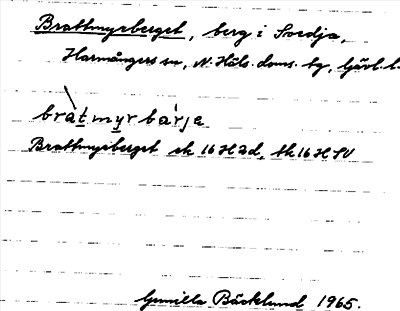 Brattmyrberget, berg i Svedja,
Harmångers sn, N. Häls. doms. tg, Gävl. l.
bràtmyrbärje
Brattmyrberget ek 16 H 2d, tk 16 H SV
Gunilla Bäcklund 1965.